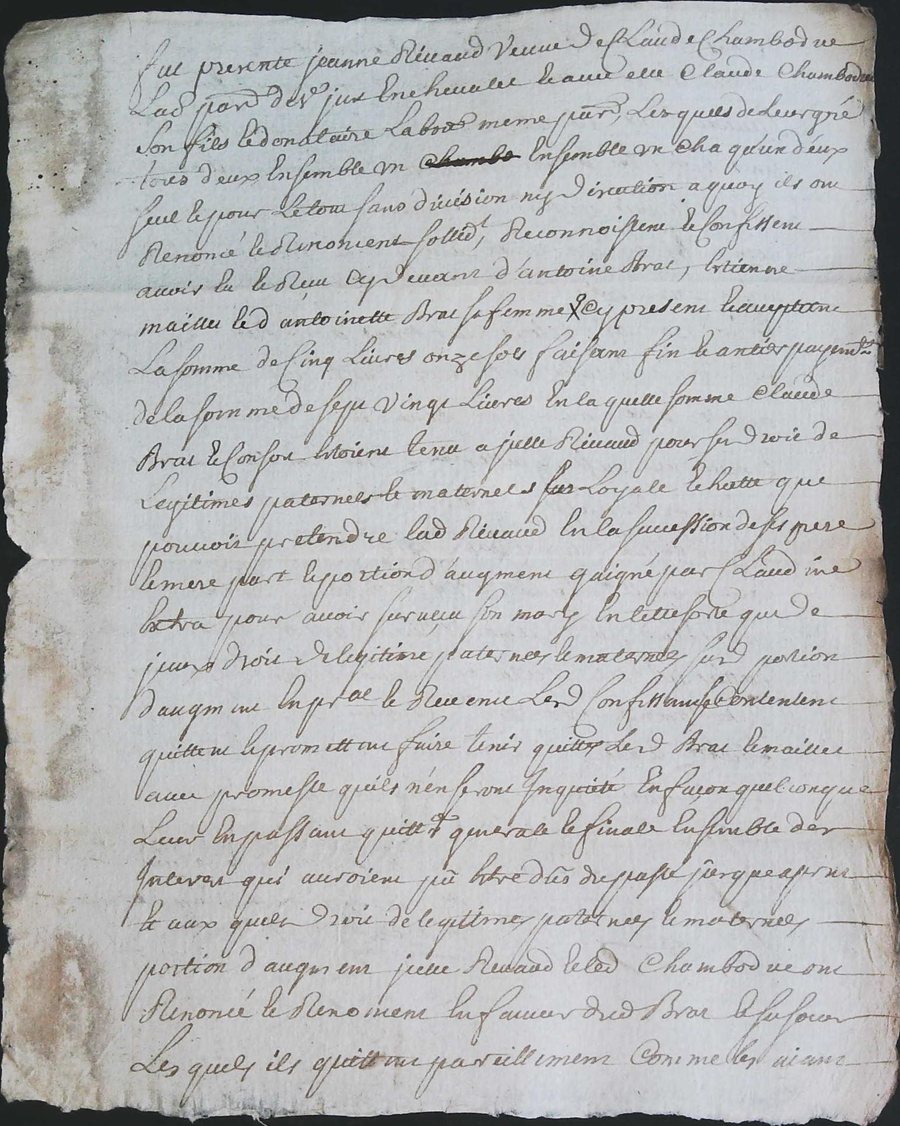 fut presente jeanne Rivaud veuve de Claude Chambodue
Lad. parr. de jux Enchevalet Et avec elle Claude Chambodue
son fils Et donataire meme parr. Lesquels de Leur gré
tous deux Ensemble un Ensemble un Chaqu'un d'eux
seul Et pour Le tout sans division ny a quoy ils ont
Renoncé Et Renoncent sollidt, Reconnoissent Et Confessent
avoir Eu Et Receu Cy devant d'antoine Brat, Etienne
maillet Et d'antoinette Brat sa femme Cy present Et acceptant
La somme de Cinq Livres onze sols faisant fin Et antier payemt
de la somme de sept vingt Livres En laquelle somme Claude
Brat Et Consort Etoient tenu a jeanne Rivaud pour ses Droit de
Legitimes paternels Et maternels que
pouvoit pretendre lad Rivaud En la sucession de ses pere
Et mere part Et portion d'augment gaigné par Claudine
Extra pour avoir survequ son mary En telle sorte que de
Droit de legitime paternels Et maternels surd portion
d'augment En pral Et Led Confessants Contentent
quittent Et promettent faire tenir quittes Led Brat Et maillet
avec promesse quils n'en seront Inquiété En façon quelconque
Leur En passant quittce generale Et finale Ensemble des
Interets qui auroient pû Etre dûs du passé jusque a present
Et aux quels Droit de legitimes paternels Et maternels
portion d'augment Rivaud Et led Chambodue ont
Renoncé Et Renoncent En faveur dud Brat Et sa soeur
Lesquels ils quittent pareillement Comme les aiant